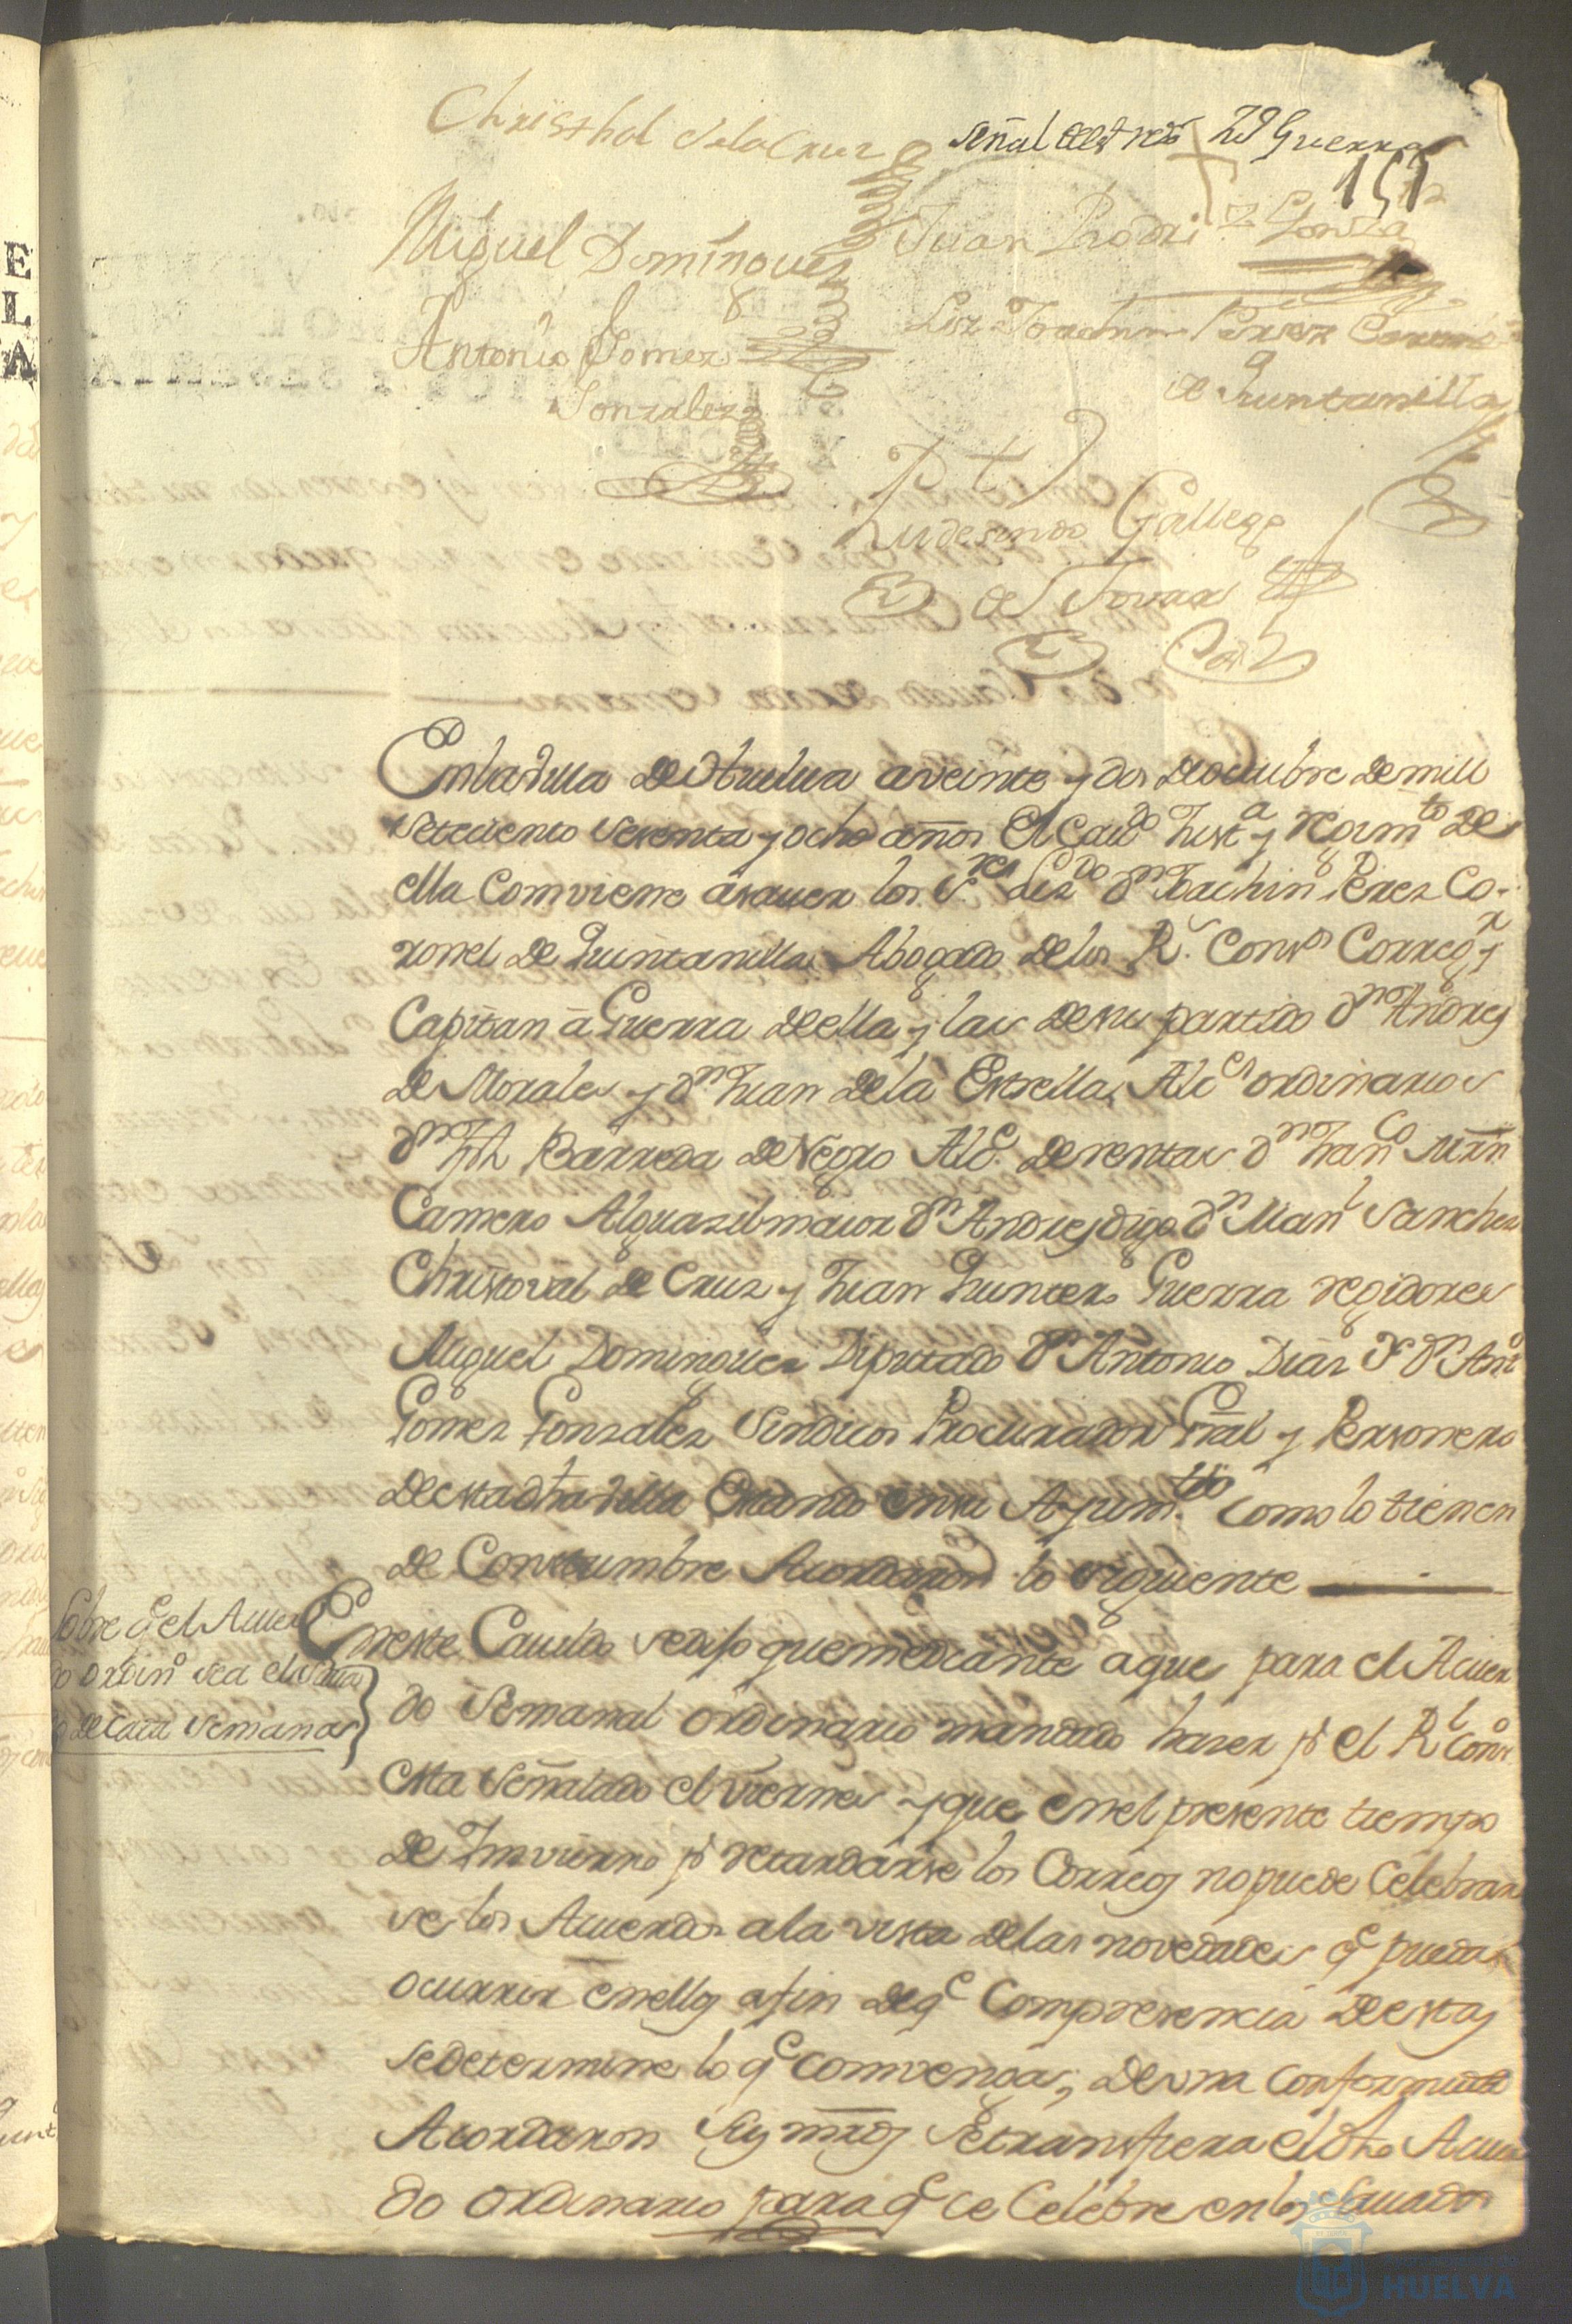 Christhol de la Cruz
señal del Regor Guerra
151
Miguel Dominguez
Juan Rodri
Antonio Gomez
Gonzalez
Liz.do Joachin Perez Coronel
de Quintanilla
Rudesindo Gallego
de Tovar
En la Villa de Huelva a veinte y dos de octubre de mill
setecientos sesenta y ocho años El Cavdo Justa y regimto de
ella comviene a saver los S.res Lizdo Dn Joachin Perez Co-
ronel de Quintanilla Abogado de los R.s Consos Corregor y
Capitan à Guerra de ella y las de su partido Dn Andres
de Morales y Dn Juan de la Estrella, Alces ordinarios
Dn Jph Barreda de Negro Alce de rentas Dn Franco Mrn
Camero Alguasil maior Dn Andres Dn Manl Sanchez
Christoval de Cruz y Juan Quintero Guerra regidores
Miguel Dominguez Diputado Dn Antonio Diaz Dn Anto
Gomez Gonzalez Sindicos Procurador Gral y Personero
de esta dha villa Estando en su Ayuntto como lo tienen
de Constumbre Acordaron lo siguiente
Sobre qe el Acuer
do ordino sea el Sava
do de cada semana
En este Cavildo se dijo que mediante a que para el Acuer
do semanal ordinario mandado haser pr el Rl Conso
esta señalado el viernes y que en el presente tiempo
de Imvierno pr retardarse los Correos no puede celebrar
se los Acuerdos a la vista de las novedades qe puedan
ocurrir en ellos a fin de qe Compresencia de estas
se determine lo qe comvenga, de una conformidad
Acordaron Sus mrds Se transfiera el dho Acuer
do ordinario para qe se Celebre en los Savados
HUELVA